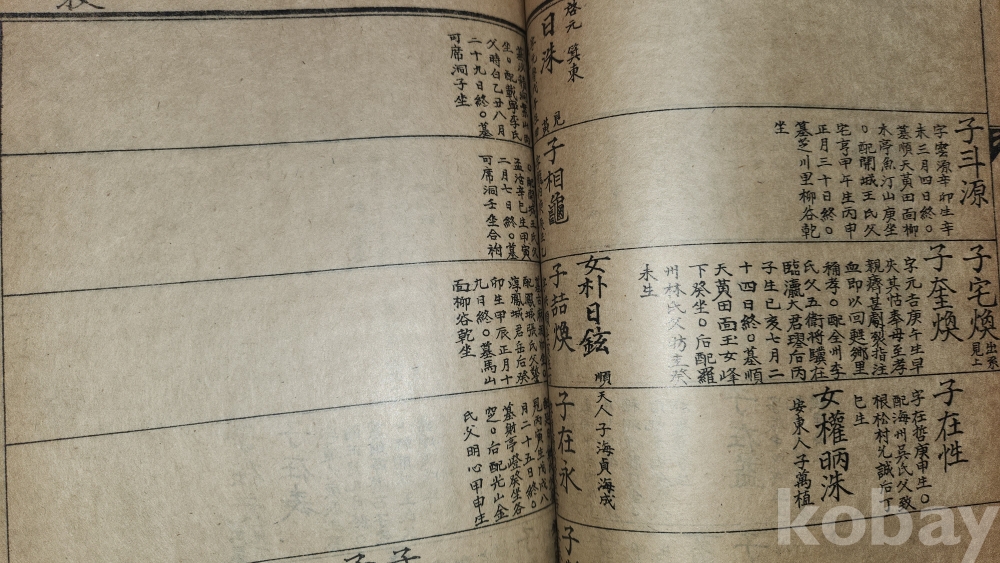 子斗源
字雲源辛卯生辛
未三月四日終○
墓順天黃田面柳
木亭魚汀山庚坐
○配開城王氏父
宅亨甲午生丙申
正月三十日終○
墓芝川里柳谷乾
坐
子宅煥 出系 見上
子奎煥
字元吉庚午生早
失其怙奉母至孝
親癠甚劇裂指注
血即以回甦鄉里
稱孝○配全州李
氏父五衛將驥在
臨瀛大君璆后丙
子生己亥七月二
十四日終○墓順
天黃田面王女峰
下癸坐○后配羅
州林氏父昉圭癸
未生
女朴日鉉
順天人子海貞海成
子在性
字在哲庚申生○
配海州吳氏父致
根松村允誠后丁
巳生
女權昞洙
安東人子萬植
啓元
日洙
生○配載寧李氏
父時白乙丑八月
二十九日終○墓
可席洞子坐
子相龜
孟浩辛巳生甲寅
二月七日終○墓
可席洞壬坐合祔
子喆煥
配鳳城張氏父
淳鳳城君岳后癸
卯生甲辰正月十
九日終○墓馬山
面柳谷乾坐
子在永
月二十五日終○
墓射亭嶝癸坐各
窆○后配光山金
氏父明心甲申生
子
子
子
kobay